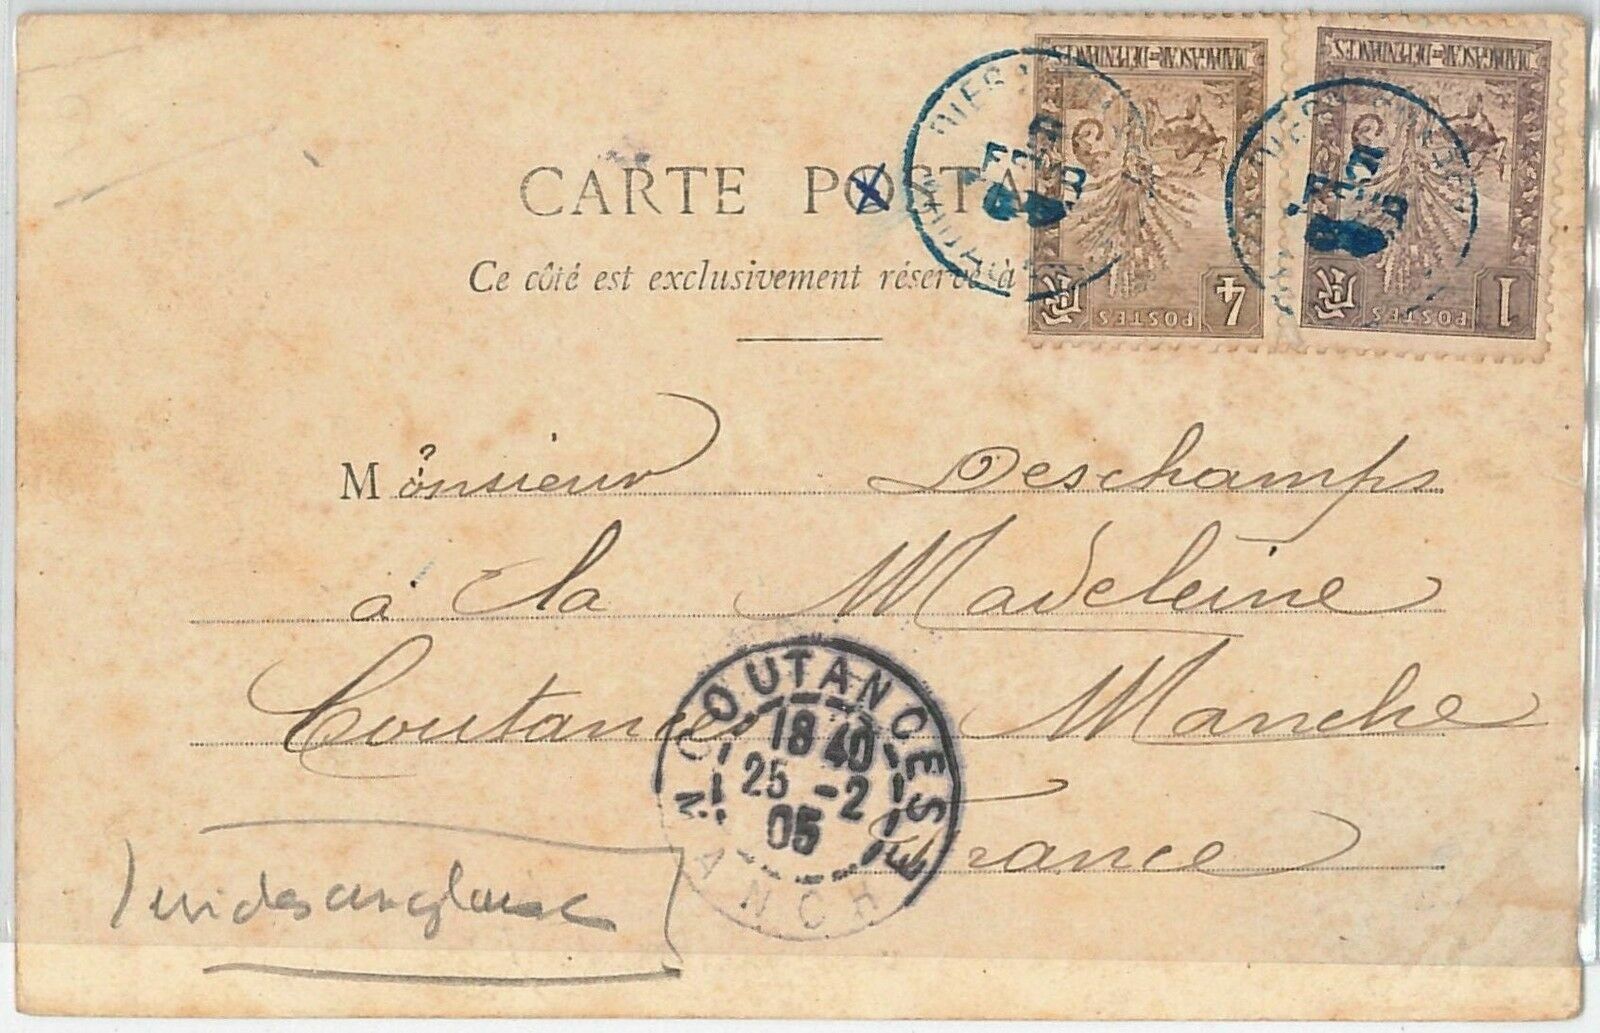 MADAGASCAR ET DÉPENDANCES
POSTES
4
MADAGASCAR ET DÉPENDANCES
POSTES
1
CARTE POSTA
Ce côté est exclusivement réservé à
Monsieur Deschamps
à la Madeleine
Coutances Manche
France
COUTANCES
18 40
25 -2
05
MANCHE